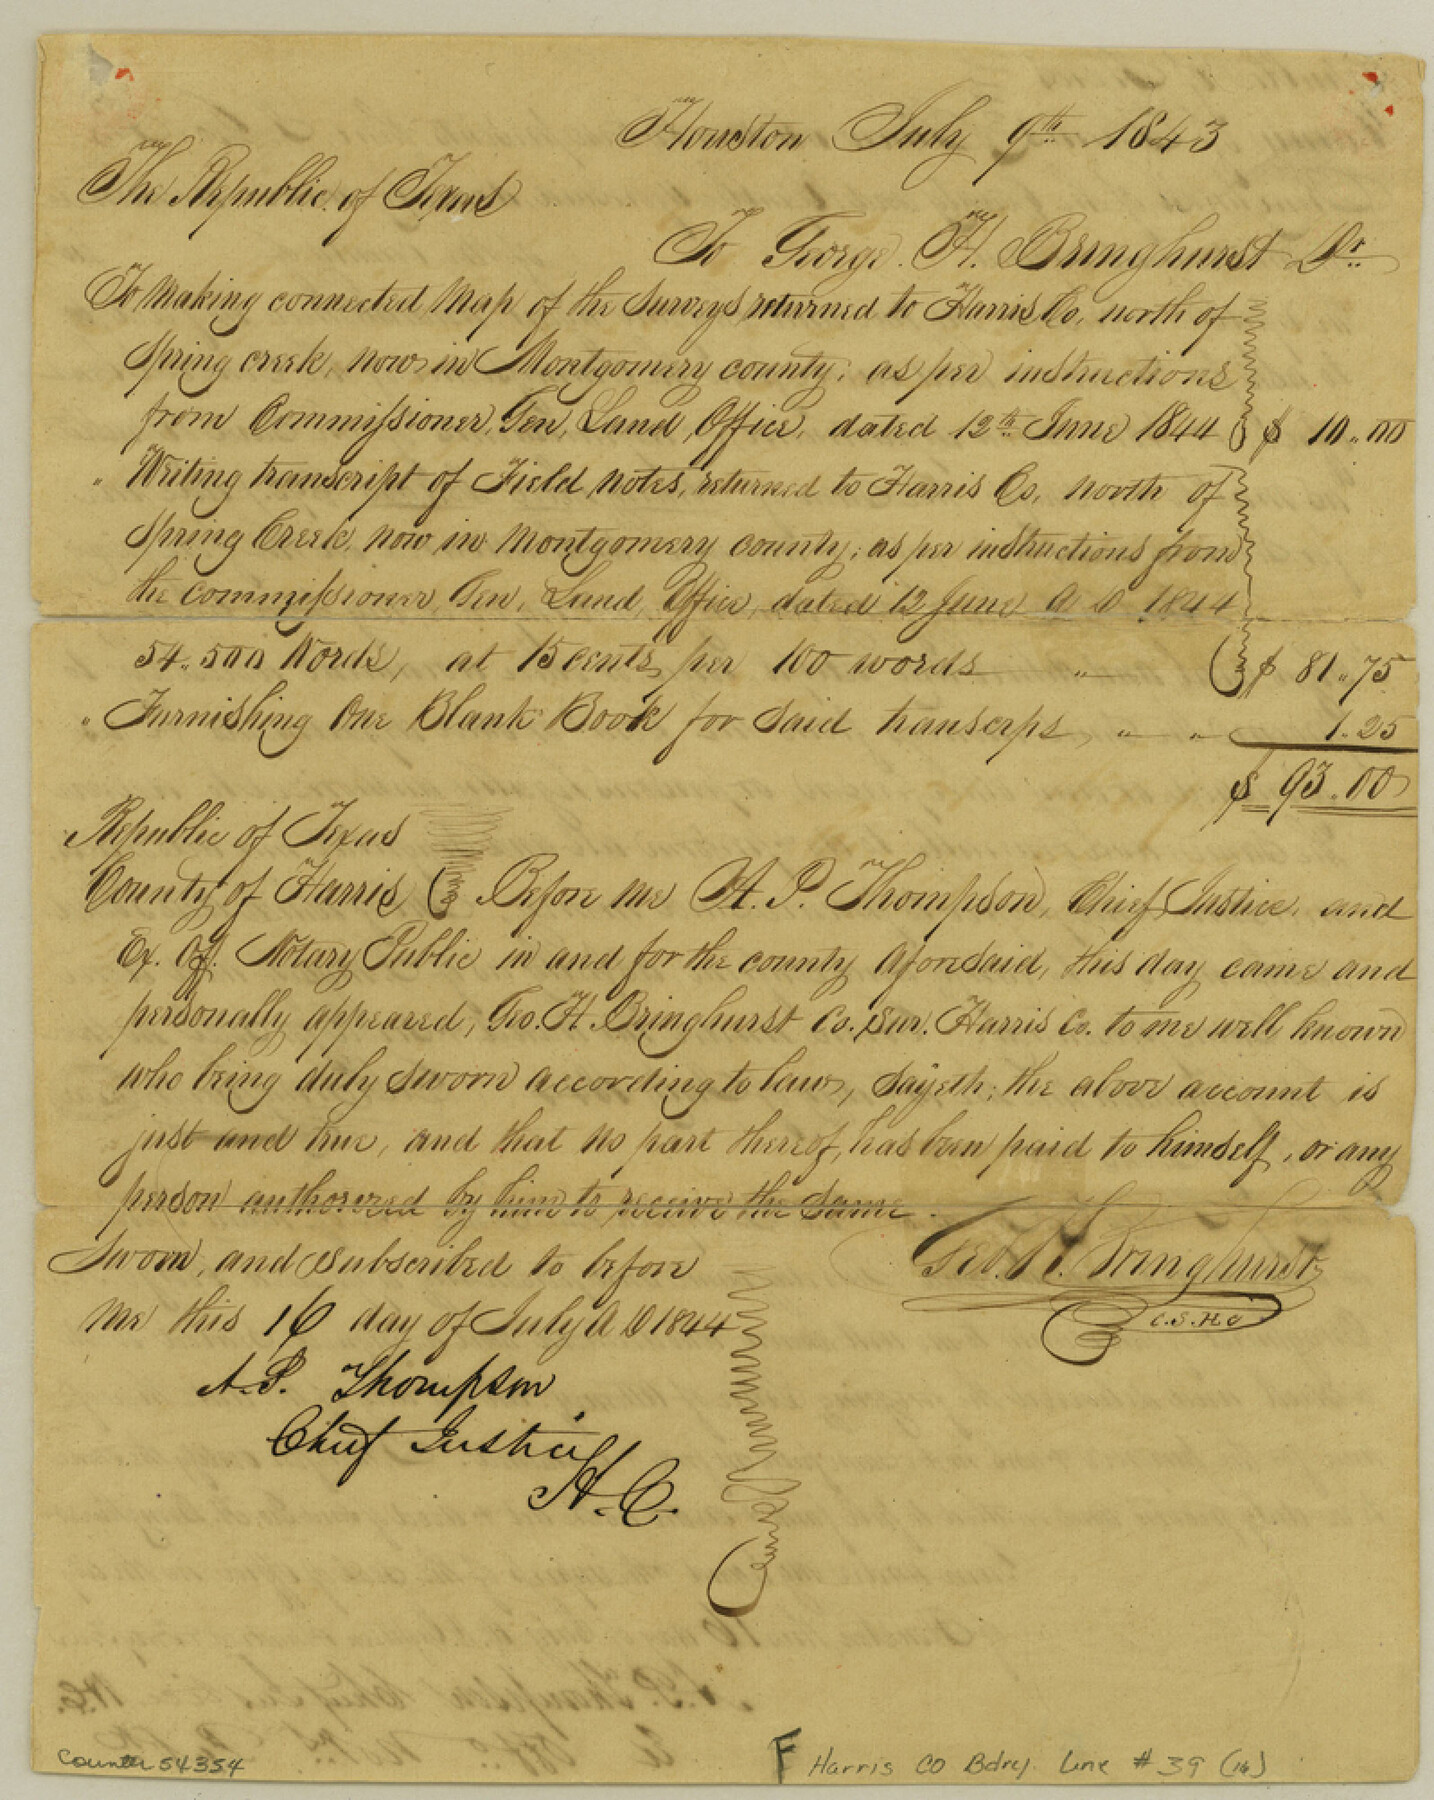 Houston July 9th 1843
The Republic of Texas
To George. H. Bringhurst Dr.
To Making connected Map of the Surveys returned to Harris Co, north of
Spring creek, now in Montgomery county; as per instructions
from Commissioner, Gen, Land, Office, dated 12th June 1844 $ 10.00
" Writing transcript of Field notes, returned to Harris Co, north of
Spring Creek, now in Montgomery county; as per instructions from
the commissioner, Gen, Land, Office, dated 12 June A D 1844
54.500 Words, at 15 cents per 100 words " $ 81.75
" Furnishing One Blank Book for said transcrps, " " 1.25
$ 93.00
Republic of Texas
County of Harris Before me A. P. Thompson, Chief Justice, and
Ex. Off. Notary Public in and for the county aforesaid, this day came and
personally appeared, Geo. H. Bringhurst Co. Sur. Harris Co. to me well known
who being duly sworn according to law, sayeth; the above account is
just and true, and that no part thereof, has been paid to himself, or any
person authorized by him to receive the same.
Sworn, and subscribed to before
me this 16 day of July A D 1844
Geo. H. Bringhurst
C.S.H.C
A. P. Thompson
Chief Justice
H. C.
Counter 54354
F Harris CO Bdry. Line # 39 (16)